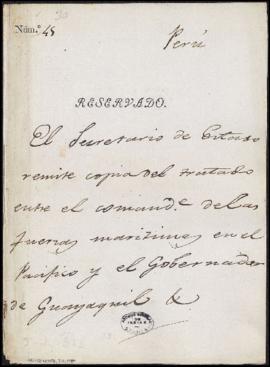 Núm.º 45
Perú
RESERVADO.
El Secretario de Estado
remite copia del tratado
entre el comand.e de las
fuerzas maritimas en el
Pacifico y el Gobernador
de Guayaquil &.